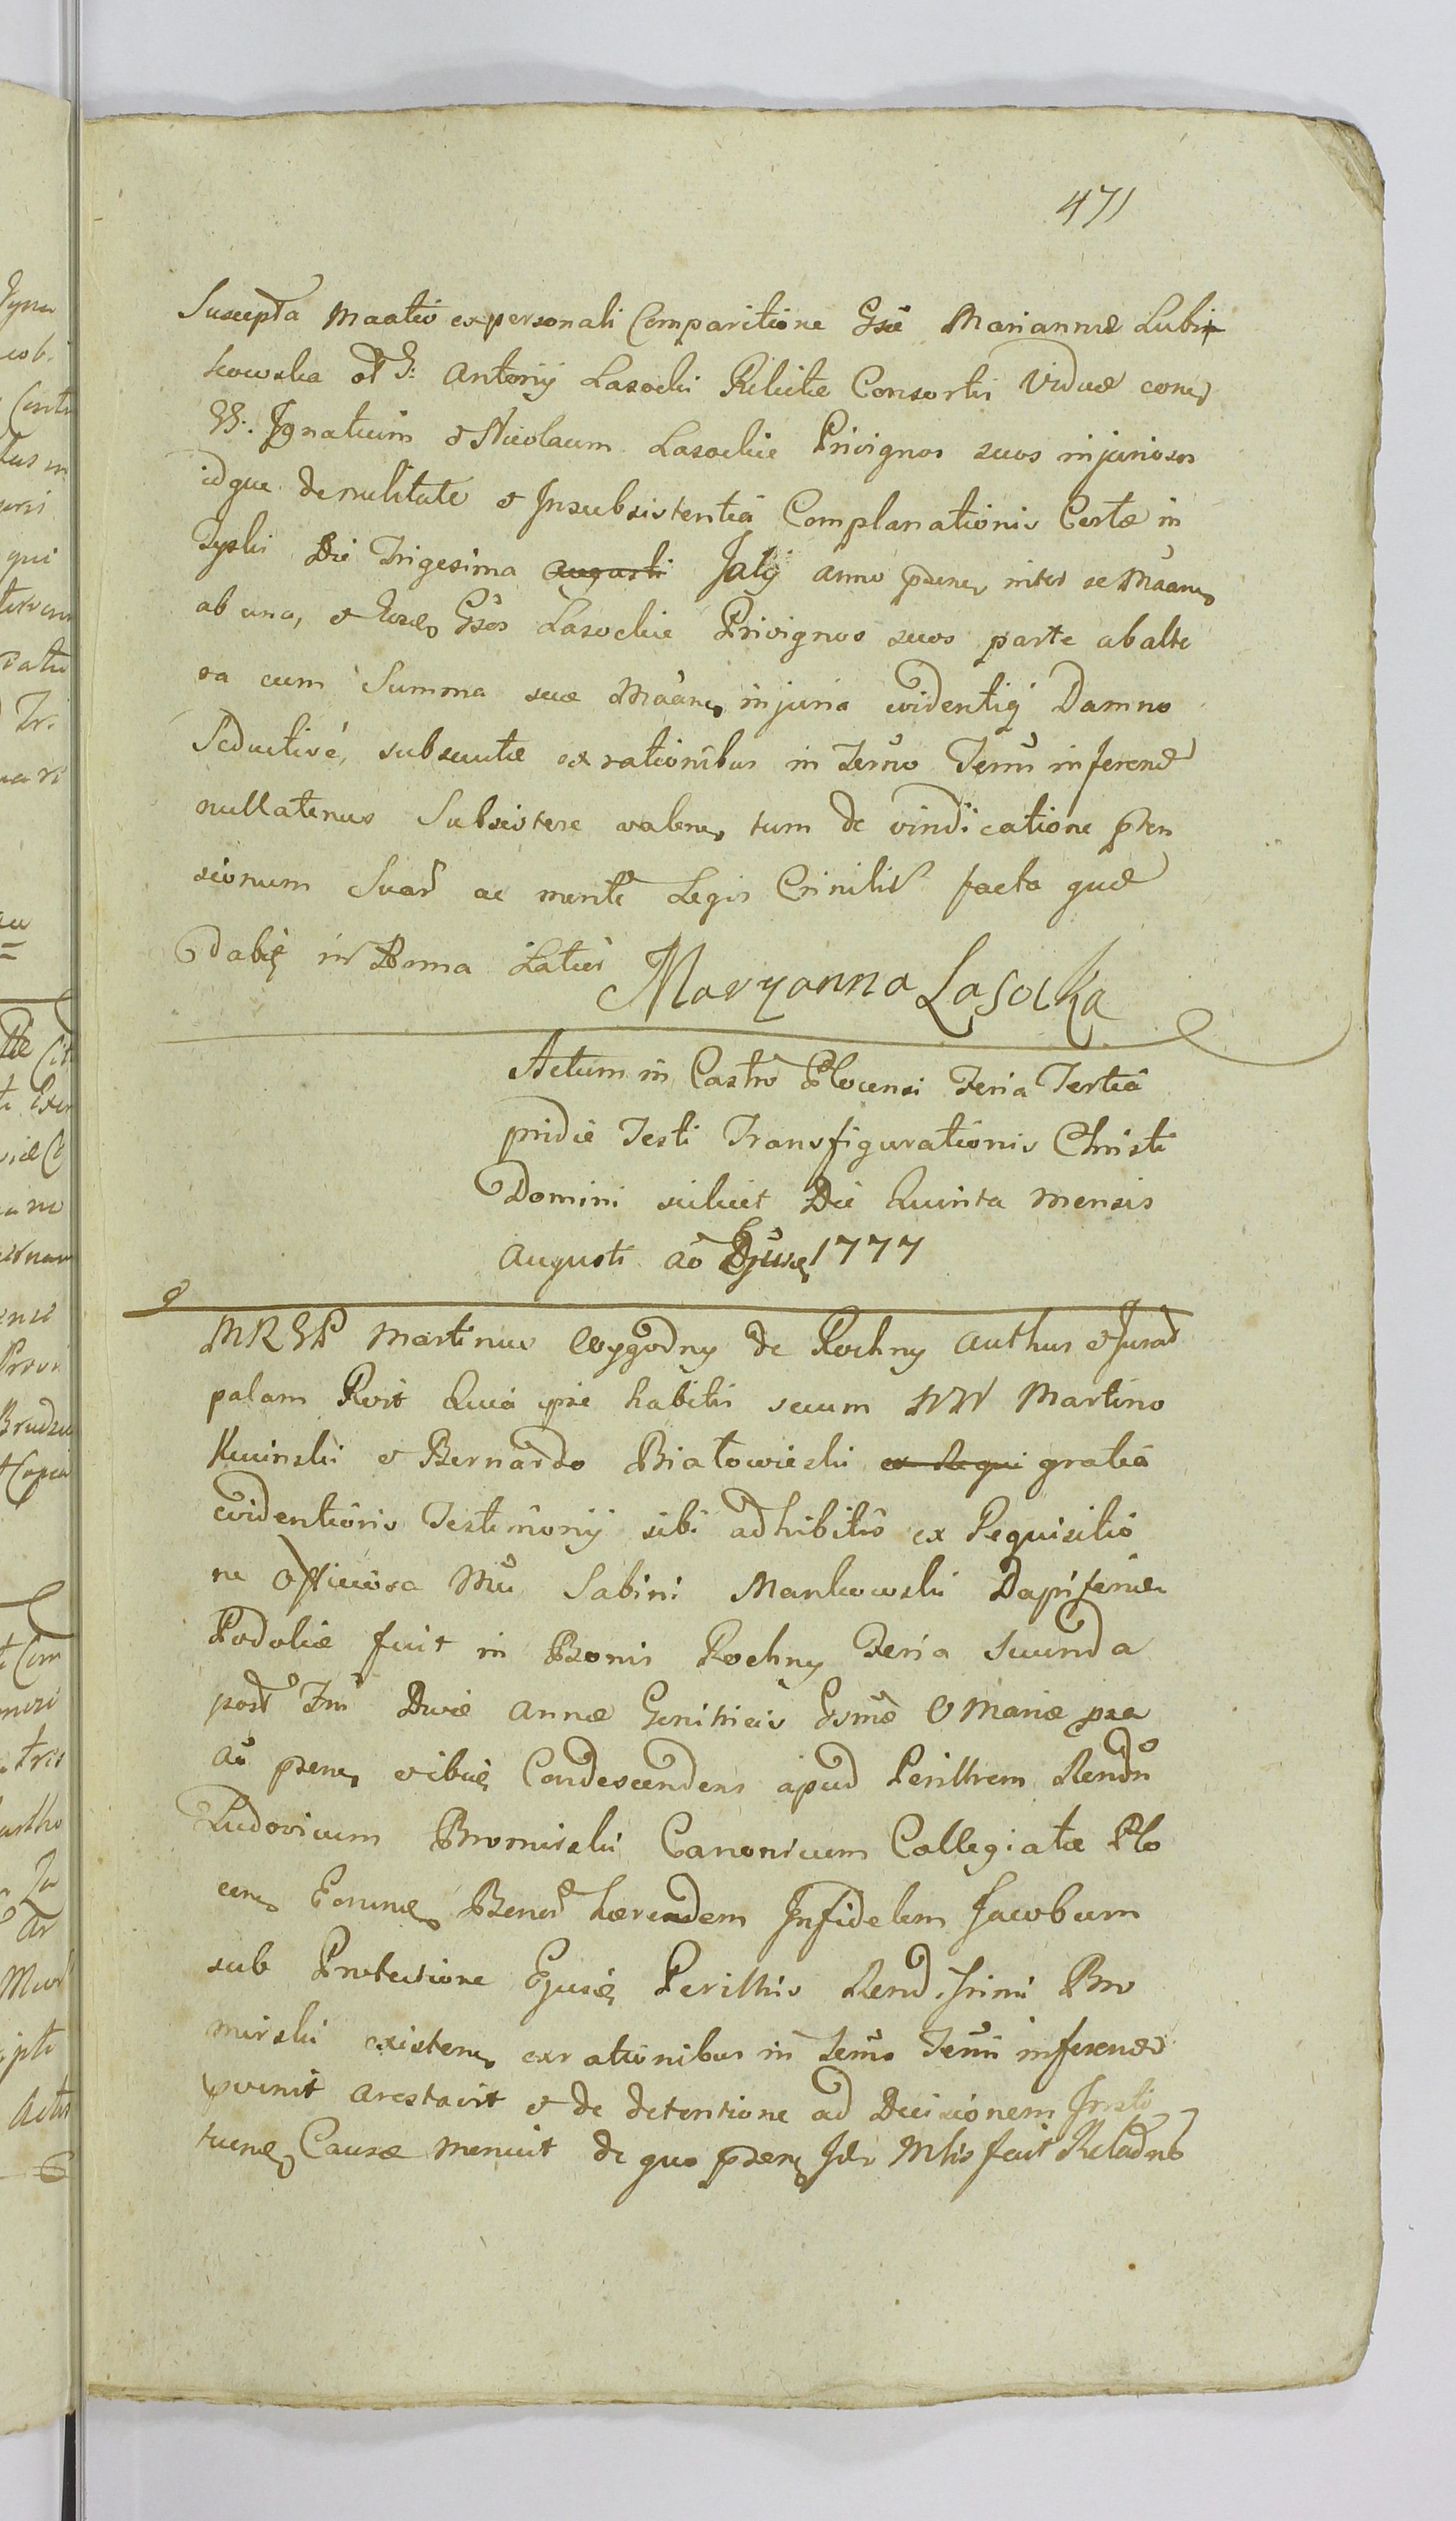 471
Suscepta Maatio ex personali Comparitione Gsae Mariannae Lubi
kowska olI G: Antonij Lasocki Relictae Consortis Viduae con
GG. Ignatium et Nicolaum Lasockie Privignos suos injuriosos
idque de nulitate et Insubsistentiâ Complanationis Certae in
Die Trigesima Augusti Julij anno praen inter se Maan
ab una, et Gsôs Lasockie Privignos suos parte ab alte
ra cum Summa sua Maan injuria evidentiq Damno
Seductivé, subsecutae ex rationibus in Termo Termi inferend
nullatenus Subsistere valen tum de vindicatione pten
sionum Suar ac mente Legis Crinilit facta quae
dabit in Forma Latiori
Maryanna Lasocka
Actum in Castro Plocensi Feria Tertiâ
pridie Festi Transfigurationis Christi
Domini scilicet Die Quinta Mensis
Augusti Aô 1777
MRGP Martinus Wygodny de Rochny Authus et Jurat
palam Rvit Quia ipse habitis secum NN Martino
Kucinski et Bernardo Białowieski gratiâ
evidentioris Testimonij sibi adhibitis ex Requisitio
ne Officiosa Mci Sabini Mankowski Dapiferi
Podoliae fuit in Bonis Rochny Feria Secunda
post Fm Divae Annae Genitricis Gsmae V Mariae pxa
Aô praen et ibiq Condescendens apud Perillrem Rendm
Ludovicum Bromirski Canonicum Collegiatae Plo
cen Eorund Benor haeredem Infidelem Jacobum
sub Protectione Ejusd Perillris Rend. Bro
mirski existen ex rationibus in Termo Termi inferend
arestavit et de detentione ad Decisionem Insti
tuend Causae monuit de quo praen Idr Mlis fecit Relaônê